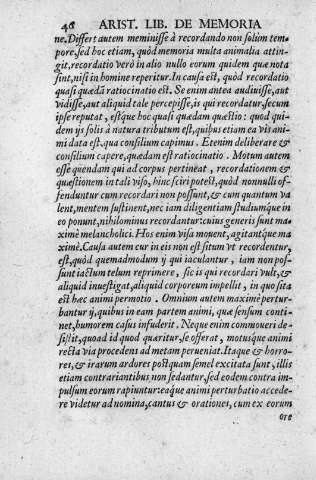 46 ARIST. LIB. DE MEMORIA
ne. Differt autem meminisse à recordando non solùm tem-
pore, sed hoc etiam, quòd memoria multa animalia attin-
git, recordatio verò in alio nullo eorum quidem quæ nota
sint, nisi in homine reperitur. In causa est, quòd recordatio
quasi quædã ratiocinatio est. Se enim antea audiuisse, aut
vidisse, aut aliquid tale percepisse, is qui recordatur, secum
ipse reputat, estque hoc quasi quædam quæstio: quod qui-
dem ijs solis à natura tributum est, quibus etiam ea vis ani-
mi data est, qua consilium capimus. Etenim deliberare &
consilium capere, quædam est ratiocinatio. Motum autem
esse quendam qui ad corpus pertineat, recordationem &
quæstionem in tali viso, hinc sciri potest, quòd nonnulli of-
fenduntur cum recordari non possunt, & cum quantum va
lent, mentem sustinent, nec iam diligentiam studiumque in
eo ponunt, nihilominus recordantur: cuius generis sunt ma-
ximè melancholici. Hos enim visa mouent, agitantque ma
ximè. Causa autem cur in eis non est situm vt recordentur,
est, quòd quemadmodum ij qui iaculantur, iam non pos-
sunt iactum telum reprimere, sic is qui recordari vult, &
aliquid inuestigat, aliquid corporeum impellit, in quo sita
est hæc animi permotio. Omnium autem maximè pertur-
bantur ij, quibus in eam partem animi, quæ sensum conti-
net, humorem casus infuderit. Neque enim commoueri de-
sistit, quoad id quod quæritur, se offerat, motusque animi
recta via procedens ad metam perueniat. Itaque & horro-
res, & irarum ardores postquam semel excitata sunt, illis
etiam contrariantibus non sedantur, sed eodem contra im-
pulsum eorum rapiuntur: eaque animi perturbatio accede-
re videtur ad nomina, cantus & orationes, cum ex eorum
ore